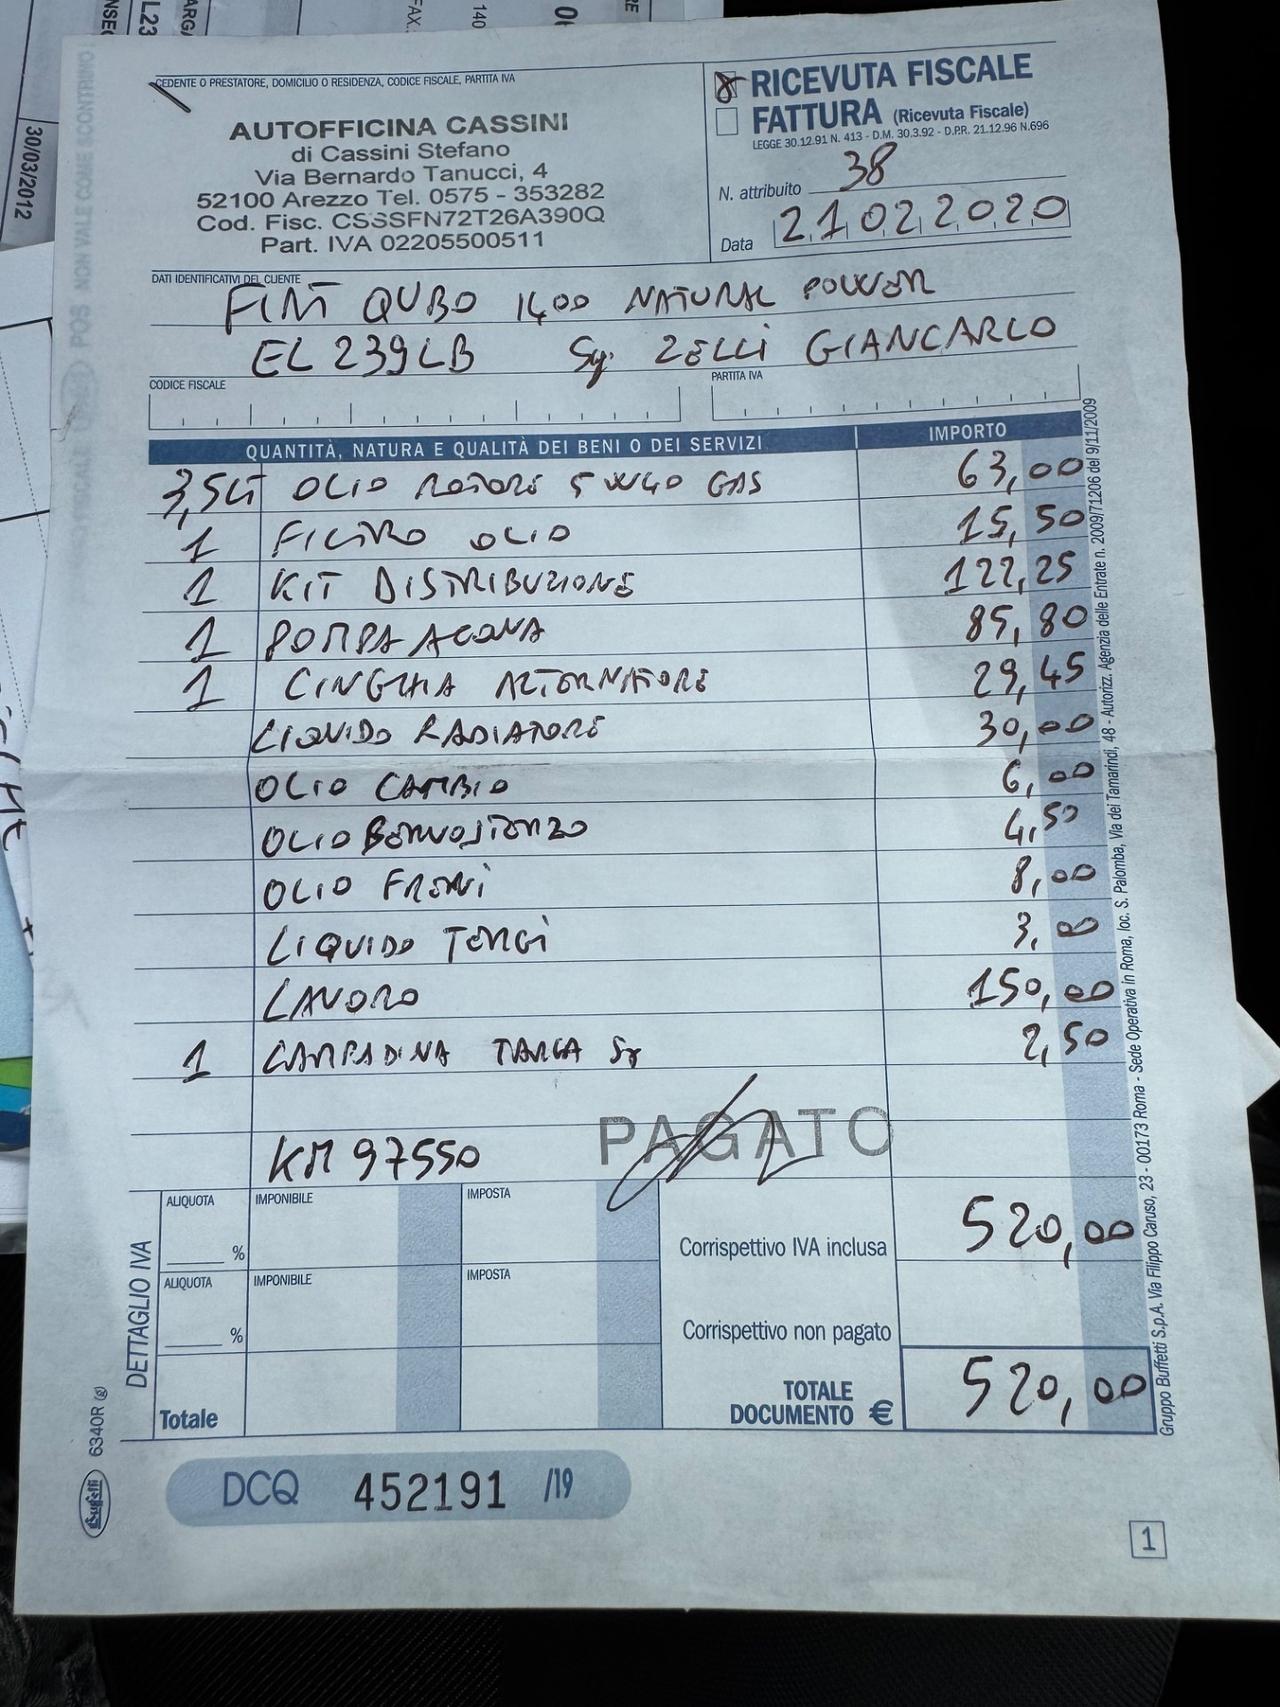 CEDENTE O PRESTATORE, DOMICILIO O RESIDENZA, CODICE FISCALE, PARTITA IVA
AUTOFFICINA CASSINI
di Cassini Stefano
Via Bernardo Tanucci, 4
52100 Arezzo Tel. 0575 - 353282
Cod. Fisc. CSSSFN72T26A390Q
Part. IVA 02205500511
RICEVUTA FISCALE
FATTURA (Ricevuta Fiscale)
LEGGE 30.12.91 N. 413 - D.M. 30.3.92 - D.P.R. 21.12.96 N.696
N. attribuito 38
Data 21022020
DATI IDENTIFICATIVI DEL CLIENTE
FIAT QUBO 1400 NATURAL POWER
EL239LB Sg. ZELLI GIANCARLO
CODICE FISCALE
PARTITA IVA
QUANTITÀ, NATURA E QUALITÀ DEI BENI O DEI SERVIZI IMPORTO
3,5LT OLIO MOTORE 5W40 GAS 63,00
1 FILTRO OLIO 15,50
1 KIT DISTRIBUZIONE 122,25
1 POMPA ACQUA 85,80
1 CINGHIA ALTERNATORE 29,45
LIQUIDO RADIATORE 30,00
OLIO CAMBIO 6,00
OLIO SERVOSTERZO 4,50
OLIO FRENI 8,00
LIQUIDO TERGI 3,00
LAVORO 150,00
1 LAMPADINA TARGA Sx 2,50
PAGATO
KM 97550
DETTAGLIO IVA
ALIQUOTA IMPONIBILE IMPOSTA
%
Corrispettivo IVA inclusa 520,00
ALIQUOTA IMPONIBILE IMPOSTA
%
Corrispettivo non pagato
Totale
TOTALE DOCUMENTO € 520,00
DCQ 452191 /19
1
Buffetti 6340R (g)
Gruppo Buffetti S.p.A. Via Filippo Caruso, 23 - 00173 Roma - Sede Operativa in Roma, loc. S. Palomba, Via dei Tamarindi, 48 - Autorizz. Agenzia delle Entrate n. 2009/71206 del 9/11/2009
POS NON VALE COME SCONTRINO
30/03/2012
140
FAX.